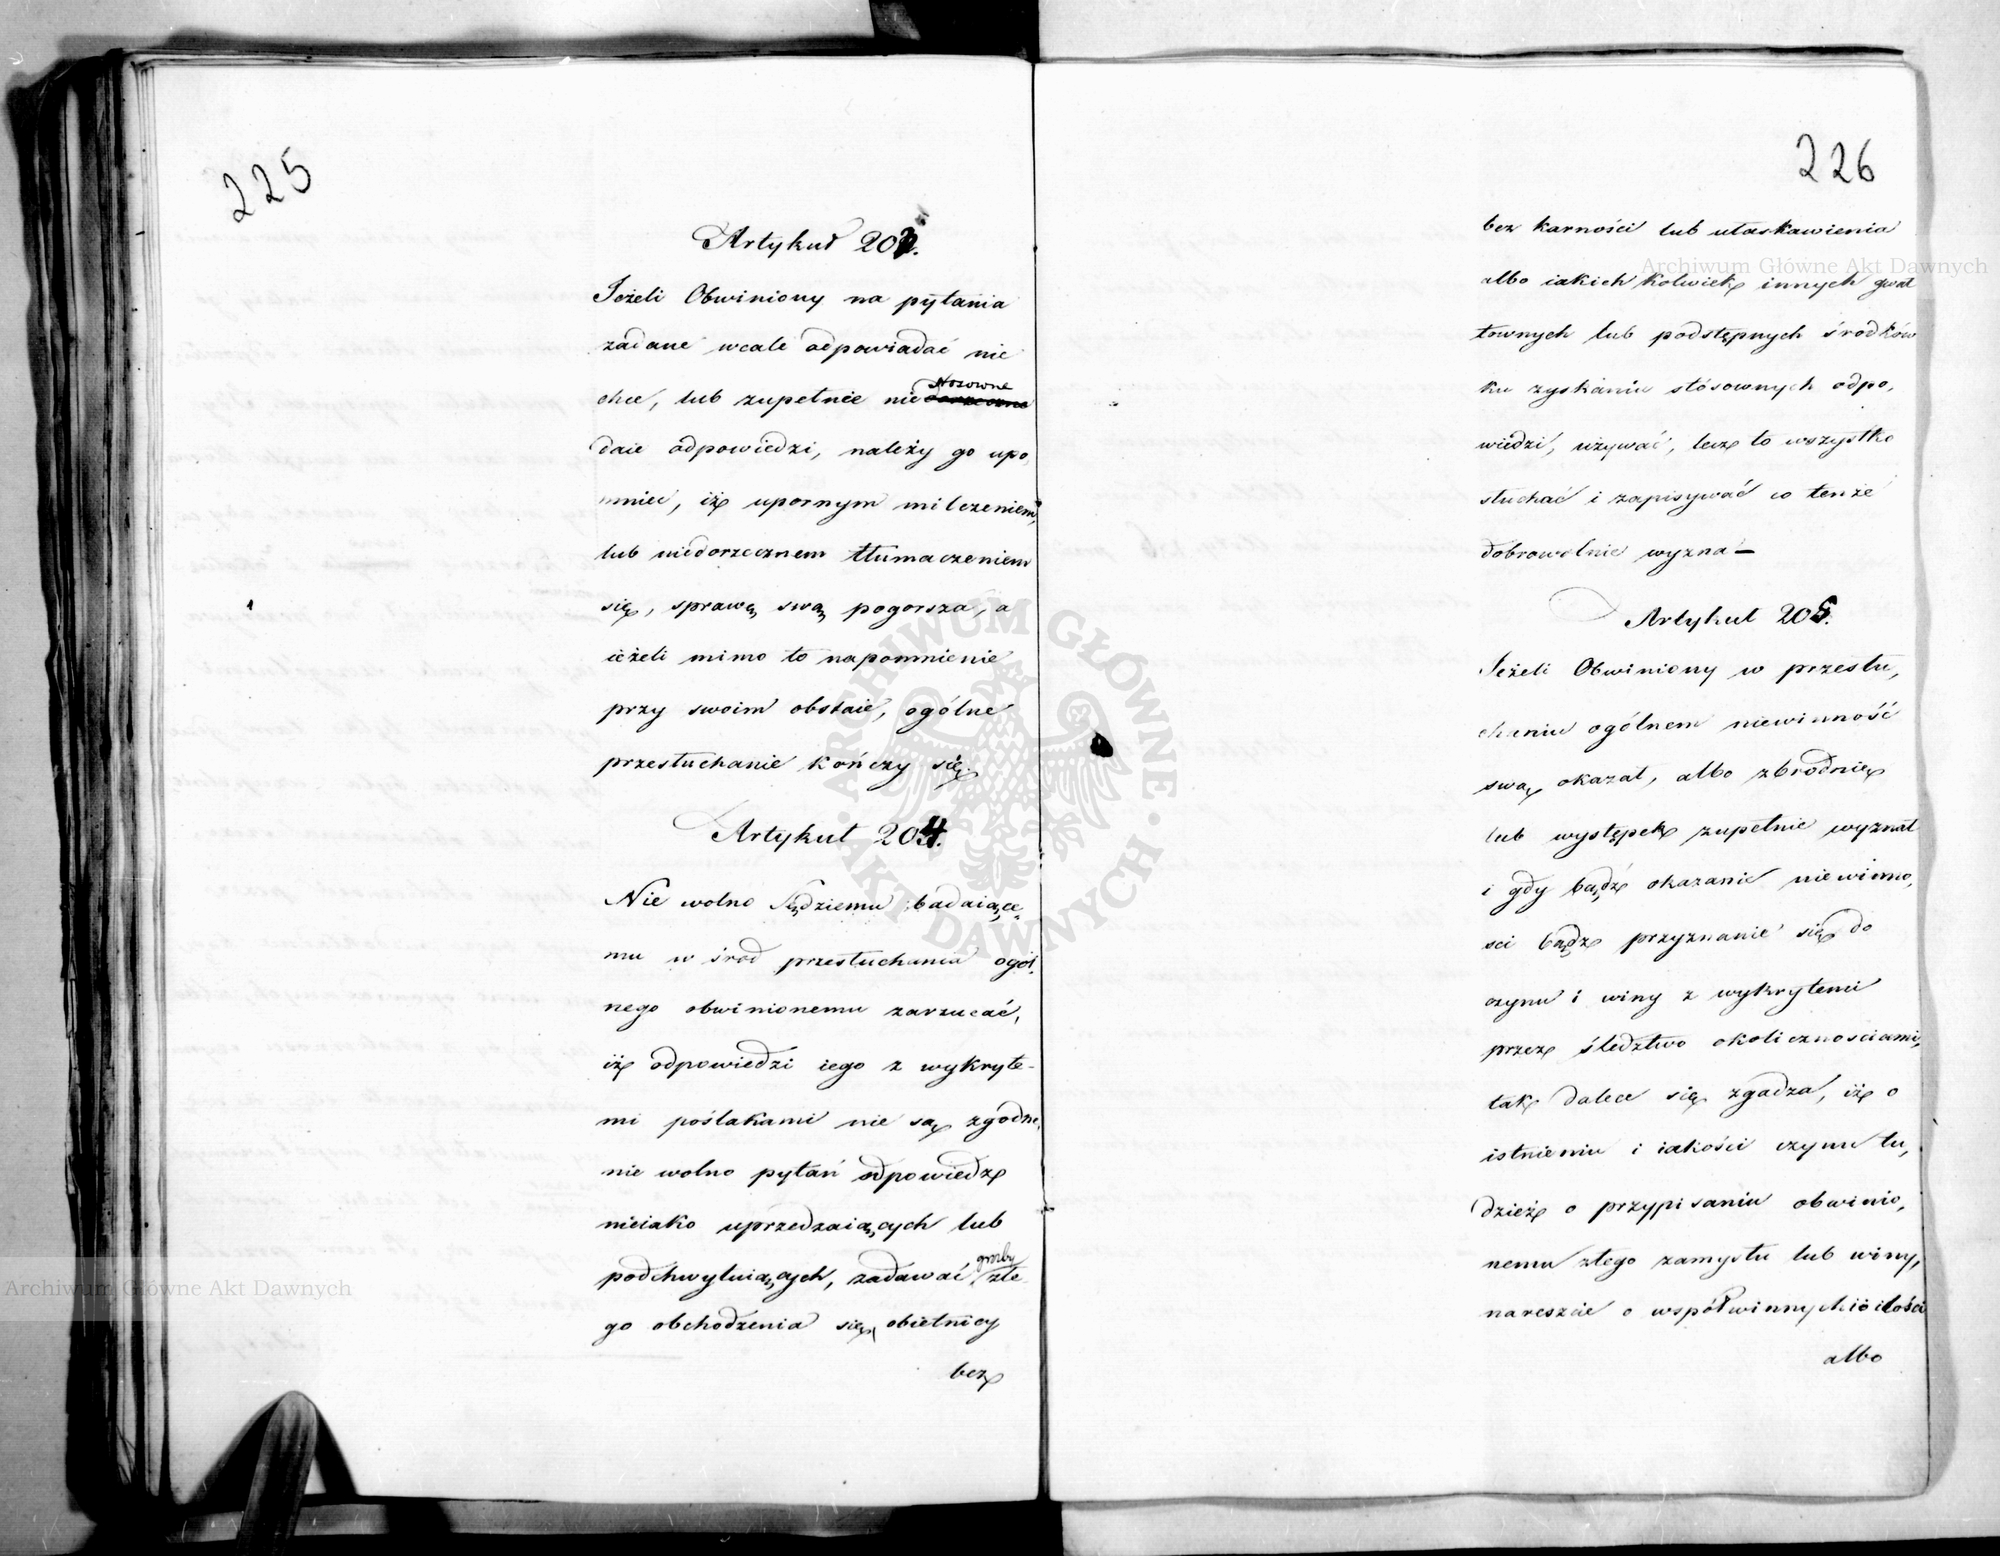 225
Artykuł 203.
Jeżeli Obwiniony na pytania
zadane wcale odpowiadać nie
chce, lub zupełnie nie stosowne
daie odpowiedzi, należy go upo,
mnieć, iż upornym milczeniem,
lub niedorzecznem tłumaczeniem
się, sprawę swą pogorsza, a
ieżeli mimo to napomnienie
przy swoim obstaie, ogólne
przesłuchanie kończy się.
Artykuł 204.
Nie wolno Sędziemu badaiące„
mu w śród przesłuchania ogól,
nego obwinionemu zarzucać,
iż odpowiedzi iego z wykryte-
mi poślakami nie są zgodne,
nie wolno pytań odpowiedź
nieiako uprzedzaiących lub
podchwytuiących, zadawać groźby złe
go obchodzenia się, obietnicy
bez
226
bez karności lub ułaskawienia
albo iakich kolwiek innych gwał
townych lub podstępnych środków
ku zyskaniu stósownych odpo,
wiedzi, używać, lecz to wszystko
słuchać i zapisywać co tenże
dobrowolnie wyzna –
Artykuł 205.
Jeżeli Obwiniony w przesłu,
chaniu ogólnem niewinność
swą okazał, albo zbrodnię
lub występek zupełnie wyznał
i gdy bądź okazanie niewinno,
sci bądź przyznanie się do
czynu i winy z wykrytemi
przez śledztwo okolicznosciami,
tak dalece się zgadza, iż o
istnieniu i iakości czynu tu,
dzież o przypisaniu obwinio,
nemu złego zamysłu lub winy,
nareszcie o współwinnych i ilości
albo
Archiwum Główne Akt Dawnych
Archiwum Główne Akt Dawnych
ARCHIWUM GŁÓWNE · AKT DAWNYCH ·